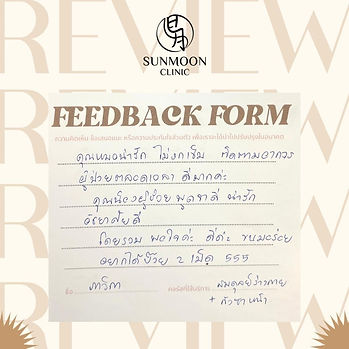 REVIEW
SUNMOON
CLINIC
REVIEW
FEEDBACK FORM
ความคิดเห็น ข้อเสนอแนะ หรือความประทับใจส่วนตัว เพื่อเราจะได้นำไปปรับปรุงในอนาคต
คุณหมอน่ารัก ไม่งกเข็ม ติดตามอาการ
ผู้ป่วยตลอดเวลา ดีมากค่ะ
คุณน้องผู้ช่วย พูดจาดี น่ารัก
อัธยาศัยดี
โดยรวม พอใจค่ะ ดีค่ะ ขนมอร่อย
อยากได้ป้าย 2 เม็ด 555
ชื่อ ภาวิกา
คอร์สที่ใช้บริการ ฝังเข็มร่างกาย
+ หน้า
REVIEW